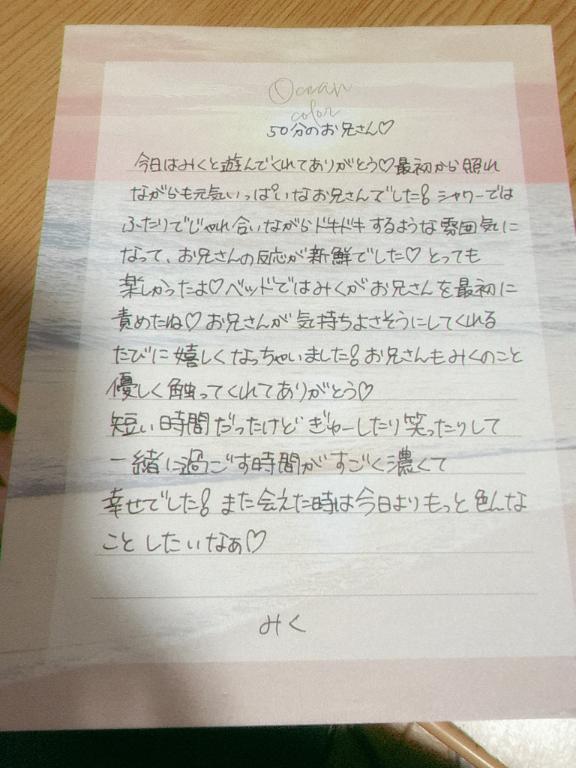 Ocean
color
50分のお兄さん♡
今日はみくと遊んでくれてありがとう♡最初から照れ
ながらも元気いっぱいなお兄さんでした!シャワーでは
ふたりでじゃれ合いながらドキドキするような雰囲気に
なって、お兄さんの反応が新鮮でした♡とっても
楽しかったよ♡ベッドではみくがお兄さんを最初に
責めたね♡お兄さんが気持ちよさそうにしてくれる
たびに嬉しくなっちゃいました!お兄さんもみくのこと
優しく触ってくれてありがとう♡
短い時間だったけどぎゅーしたり笑ったりして
一緒に過ごす時間がすごく濃くて
幸せでした!また会えた時は今日よりもっと色んな
ことしたいなぁ♡
みく